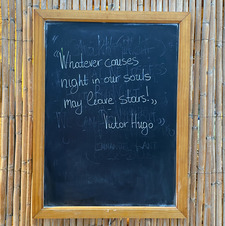 "Whatever causes
night in our souls
may leave stars!"
Victor Hugo"